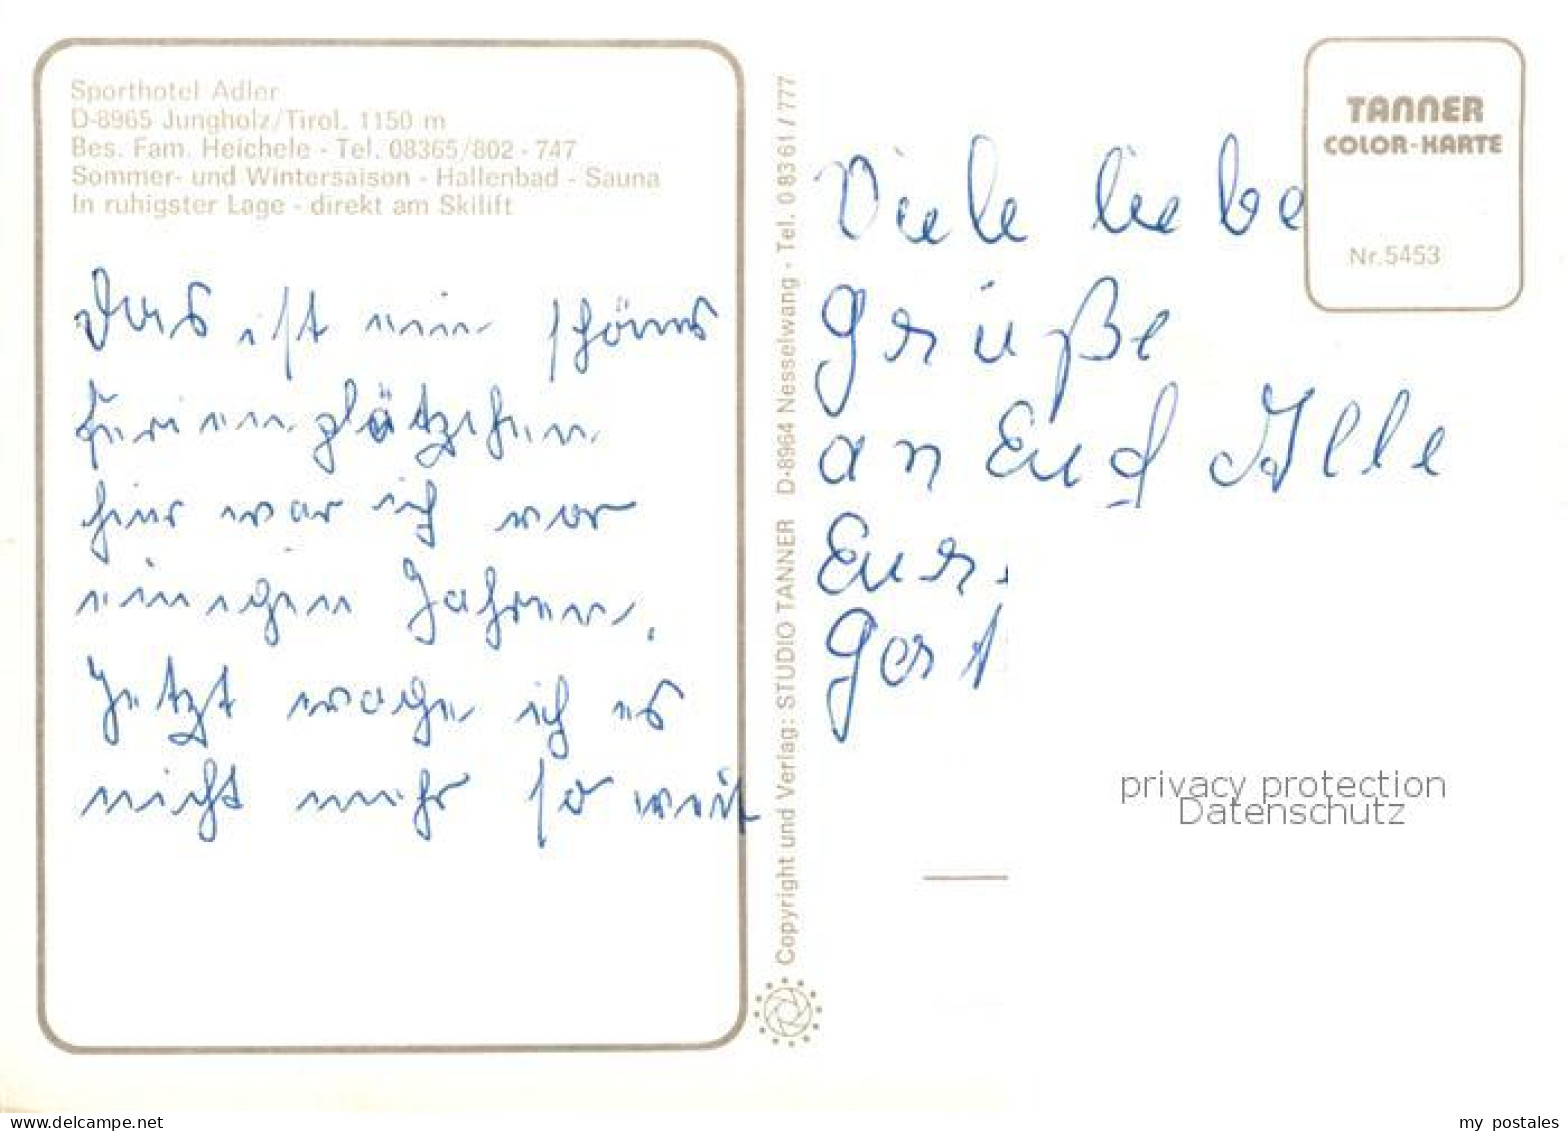 Sporthotel Adler
D-8965 Jungholz/Tirol, 1150 m
Bes. Fam. Heichele - Tel. 08365/802 - 747
Sommer- und Wintersaison - Hallenbad - Sauna
In ruhigster Lage - direkt am Skilift
Das ist ein schönes
Ferienplätzchen
hier war ich vor
einigen Jahren.
Jetzt wage ich es
nicht mehr so weit
Copyright und Verlag: STUDIO TANNER D-8964 Nesselwang - Tel. 08361/777
TANNER
COLOR-KARTE
Nr. 5453
Viele liebe
Grüße
an Euch Alle
Euer.
Gert
privacy protection
Datenschutz
delcampe.net
my_postales